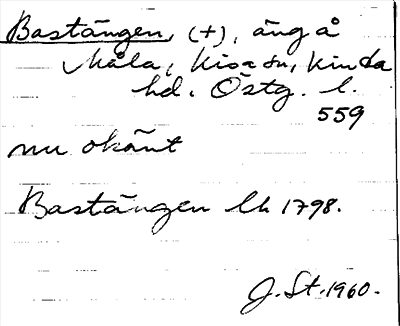 Bastängen, (+), äng å
Måla, Kisa sn, Kinda
hd. Östg. l.
559
nu okänt
Bastängen lh 1798.
J. St. 1960.